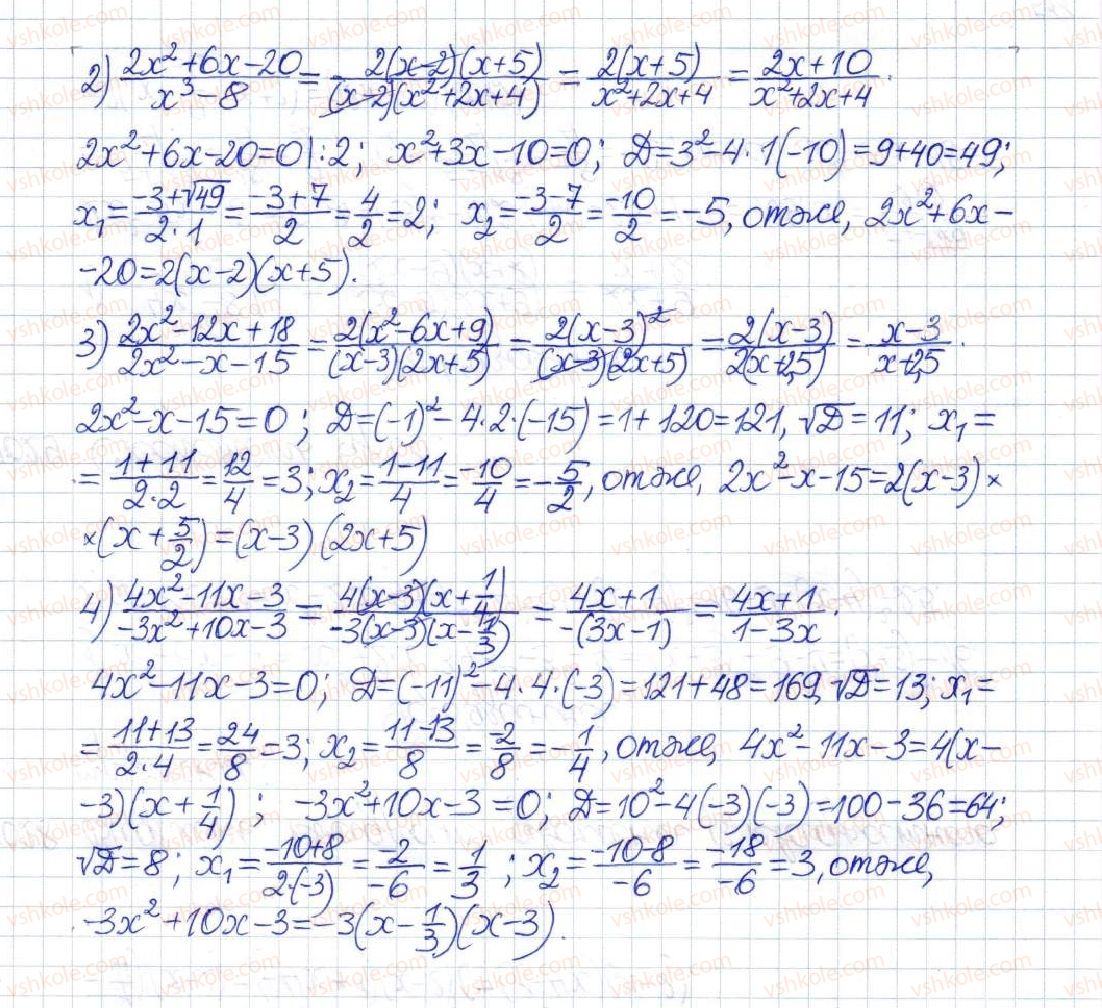 2) (2x²+6x-20)/(x³-8) = (2(x-2)(x+5))/((x-2)(x²+2x+4)) = (2(x+5))/(x²+2x+4) = (2x+10)/(x²+2x+4).
2x²+6x-20=0|:2; x²+3x-10=0; Д=3²-4·1(-10)=9+40=49;
x₁=(-3+√49)/(2·1)=(-3+7)/2=4/2=2; x₂=(-3-7)/2=-10/2=-5, отже, 2x²+6x-
-20=2(x-2)(x+5).
3) (2x²-12x+18)/(2x²-x-15)=(2(x²-6x+9))/((x-3)(2x+5))=(2(x-3)²)/((x-3)(2x+5))=(2(x-3))/(2(x+2,5))=(x-3)/(x+2,5).
2x²-x-15=0; Д=(-1)²-4·2·(-15)=1+120=121, √Д=11; x₁=
=(1+11)/(2·2)=12/4=3; x₂=(1-11)/4=-10/4=-5/2, отже, 2x²-x-15=2(x-3)×
×(x+5/2)=(x-3)(2x+5)
4) (4x²-11x-3)/(-3x²+10x-3)=(4(x-3)(x+1/4))/(-3(x-3)(x-1/3))=(4x+1)/(-(3x-1))=(4x+1)/(1-3x).
4x²-11x-3=0; Д=(-11)²-4·4·(-3)=121+48=169, √Д=13; x₁=
=(11+13)/(2·4)=24/8=3; x₂=(11-13)/8=-2/8=-1/4, отже, 4x²-11x-3=4(x-
-3)(x+1/4); -3x²+10x-3=0; Д=10²-4(-3)(-3)=100-36=64;
√Д=8; x₁=(-10+8)/(2·(-3))=-2/-6=1/3; x₂=(-10-8)/-6=-18/-6=3, отже,
-3x²+10x-3=-3(x-1/3)(x-3).
vshkole.com